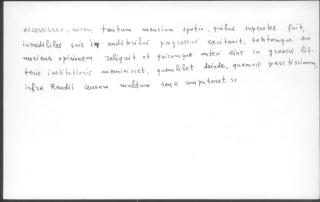 accessisset, novem, trentum mensium spatio, quibus superstes fuit,
incredibiles suis in auditoribus progressus excitavit, tantamque sui
moriens opinionem reliquit ut quicumque antea eius in graecis lit-
teris institutionis meminisset, quemlibet deinde, quamvis peritissimum,
infra Rendii censum multum sane computaret »